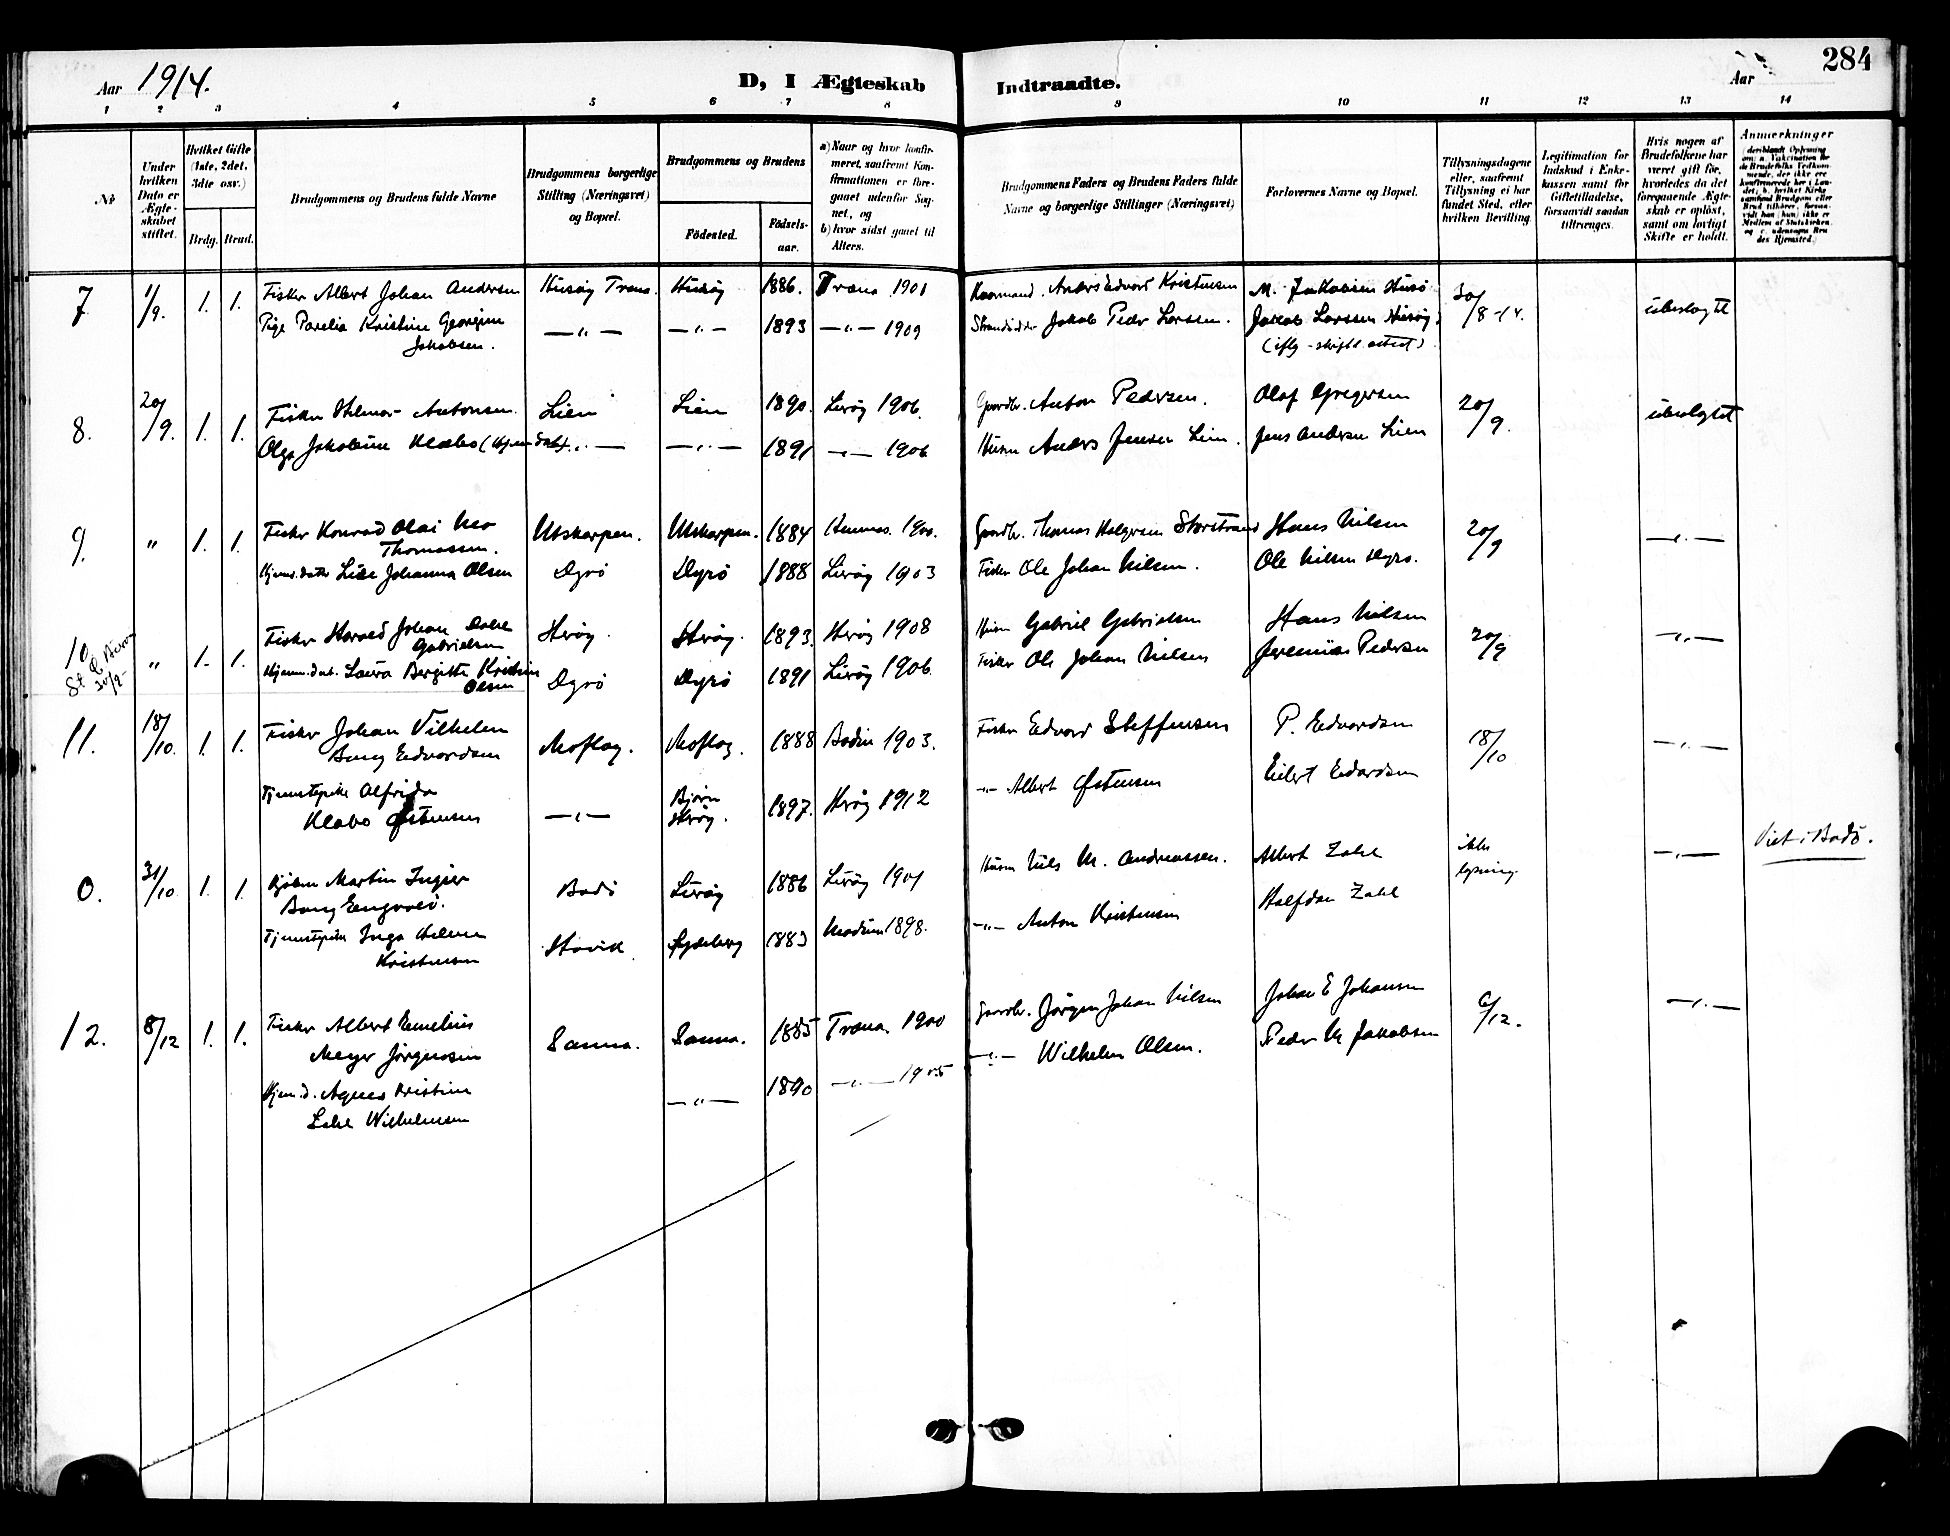 284
Aar 1914.
D, I Ægteskab Indtraadte.
Aar
1 2 3 4 5 6 7 8 9 10 11 12 13 14
№
Under hvilken Dato er Ægteskabet stiftet.
Hvilket Gifte (1ste, 2det, 3die osv.)
Brdg. Brud.
Brudgommens og Brudens fulde Navne
Brudgommens borgerlige Stilling (Næringsvei) og Bopæl.
Brudgommens og Brudens
Fødested.
Fødselsaar.
a) Naar og hvor konfirmeret, saafremt Konfirmationen er foregaaet udenfor Sognet, og
b) hvor sidst gaaet til Alters.
Brudgommens Faders og Brudens Faders fulde Navne og borgerlige Stillinger (Næringsvei)
Forlovernes Navne og Bopæl.
Tillysningsdagene eller, saafremt Tillysning ei har fundet Sted, efter hvilken Bevilling.
Legitimation for Indskud i Enkekassen samt for Giftetilladelse, forsaavidt saadan tiltrænges.
Hvis nogen af Brudefolkene har været gift før, hvorledes da det foregaaende Ægteskab er opløst, samt om lovligt Skifte er holdt.
Anmerkninger
7. 1/9. 1. 1. Fisker Albert Johan Andersen Husøy Træna. Husøy 1886. Træna 1901 Anders Edvard Kristensen M. Jakobsen Husø 30/8-14. ubeslegtet
Pige Parelia Kristine Georgine — „ — — „ — 1893 — „ — 1909 Jakob Peder Larssen. Jakob Larssen Husøy.
Jakobsen.
8. 20/9. 1. 1. Fisker Hilmar Antonsen. Lien Lien 1890. Lurøy 1906. Gaardbr. Anton Pedersen. Olaf Gregersen 20/9. ubeslegtet
Olga Jakobine Klæbo (Hjemmedatt.) — „ — — „ — 1891 — „ — 1906 Husm Anders Jensen Lien. Jens Andersen Lien
9. „ 1. 1. Fisker Konrad Olai Mo Utskarpen. Utskarpen. 1884 Hemnes. 1900. Gaardbr. Thomas Holgersen Storstrand Hans Nilsen 20/9 — „ —
Thomassen.
Hjem. datter Lise Johanna Olsen Dyrø Dyrø 1888 Lurøy 1903 Fisker Ole Johan Nilsen. Ole Nilsen Dyrø.
10 „ 1. 1. Fisker Harald Johan Dahl Herøy. Herøy. 1893. Herøy 1908 Husm Gabriel Gabrielsen Hans Nilsen 20/9 — „ —
Gabrielsen
Hjem. dat. Laura Bergitte Kristine Dyrø Dyrø 1891 Lurøy 1906. Fisker Ole Johan Nilsen Jeremias Pedersen
Olsen
11. 18/10. 1. 1. Fisker Johan Vilhelm Moflag. Moflag. 1888 Bodin 1903. Fisker Edvard Steffensen P. Edvardsen 18/10 — „ —
Bang Edvardsen
Tjenestepike Alfrida — „ — Bjørn Herøy. 1897. Herøy 1912 — „ — Albert Østensen Eilert Edvardsen
Klæbo Østensen
0. 31/10. 1. 1. Martin Ingier Bodø Lurøy 1886 Lurøy 1901 Husm Nils M. Andreassen. Albert Zahl ikke lysning. — „ — Viet i Bodø.
Bang Engvold.
Tjenestepike Inga Helene Støvik 1883 Modum 1898. — „ — Anton Kristensen Halfdan Zahl
Kristensen
12. 8/12 1. 1. Fisker Albert Emelius Sanna. Sanna. 1885 Træna. 1900 Gaardbr. Jørgen Johan Nilsen Johan E Johansen 6/12. — „ —
Meyer Jørgensen
Hjem. d. Agnes Kristine — „ — 1890 — „ — 1905 — „ — Wilhelm Olsen. Peder M Jakobsen
Wilhelmsen